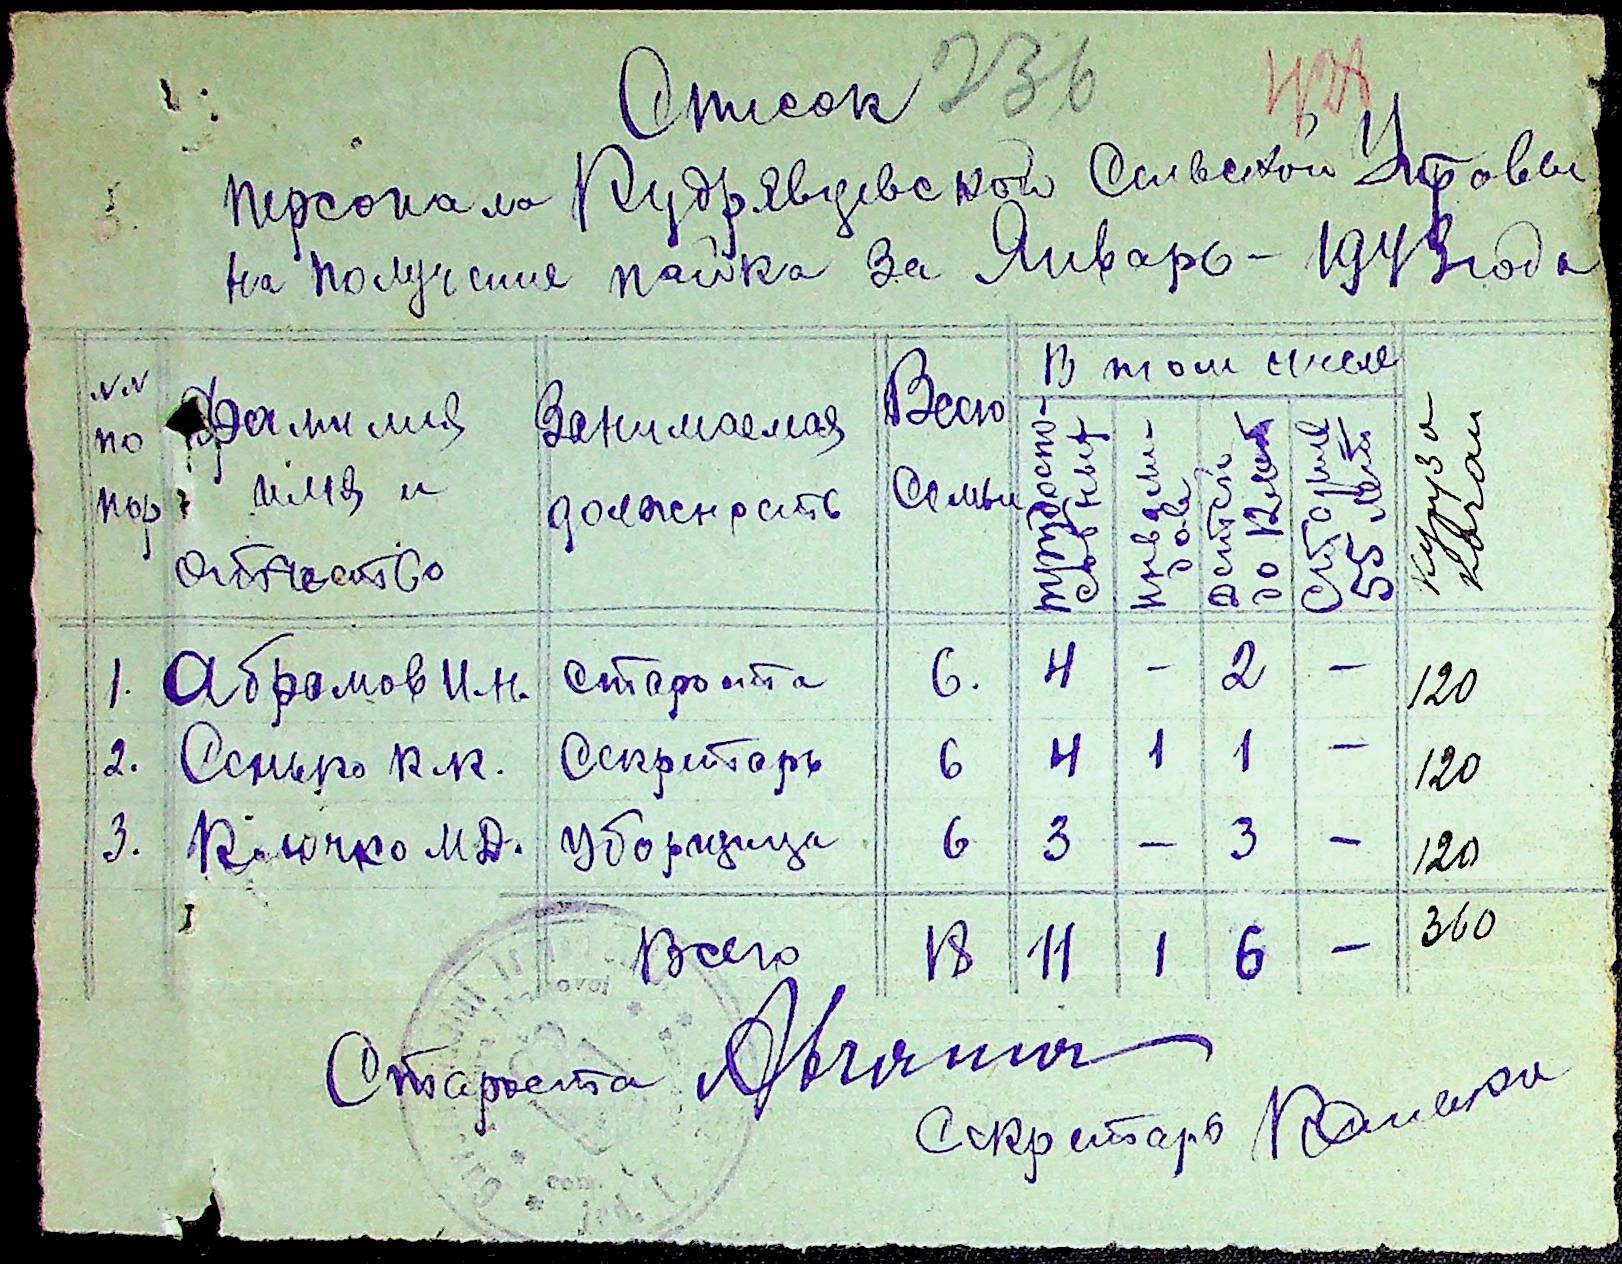 Список 236
персонала Кудрявцевской Сельской Управы
на получение пайка за Январь - 1943 года
NN по пор
Фамилия имя и отчество
Занимаемая должность
Всего семьи
В том числе
трудоспособных
инвалидов
детей до 12 лет
старше 55 лет
кукуруза
1. Абрамов И.Н. Староста 6. 4 - 2 - 120
2. Сенько К.К. Секретарь 6 4 1 1 - 120
3. Клочко М.Д. Уборщица 6 3 - 3 - 120
Всего 18 11 1 6 - 360
Староста
Секретарь